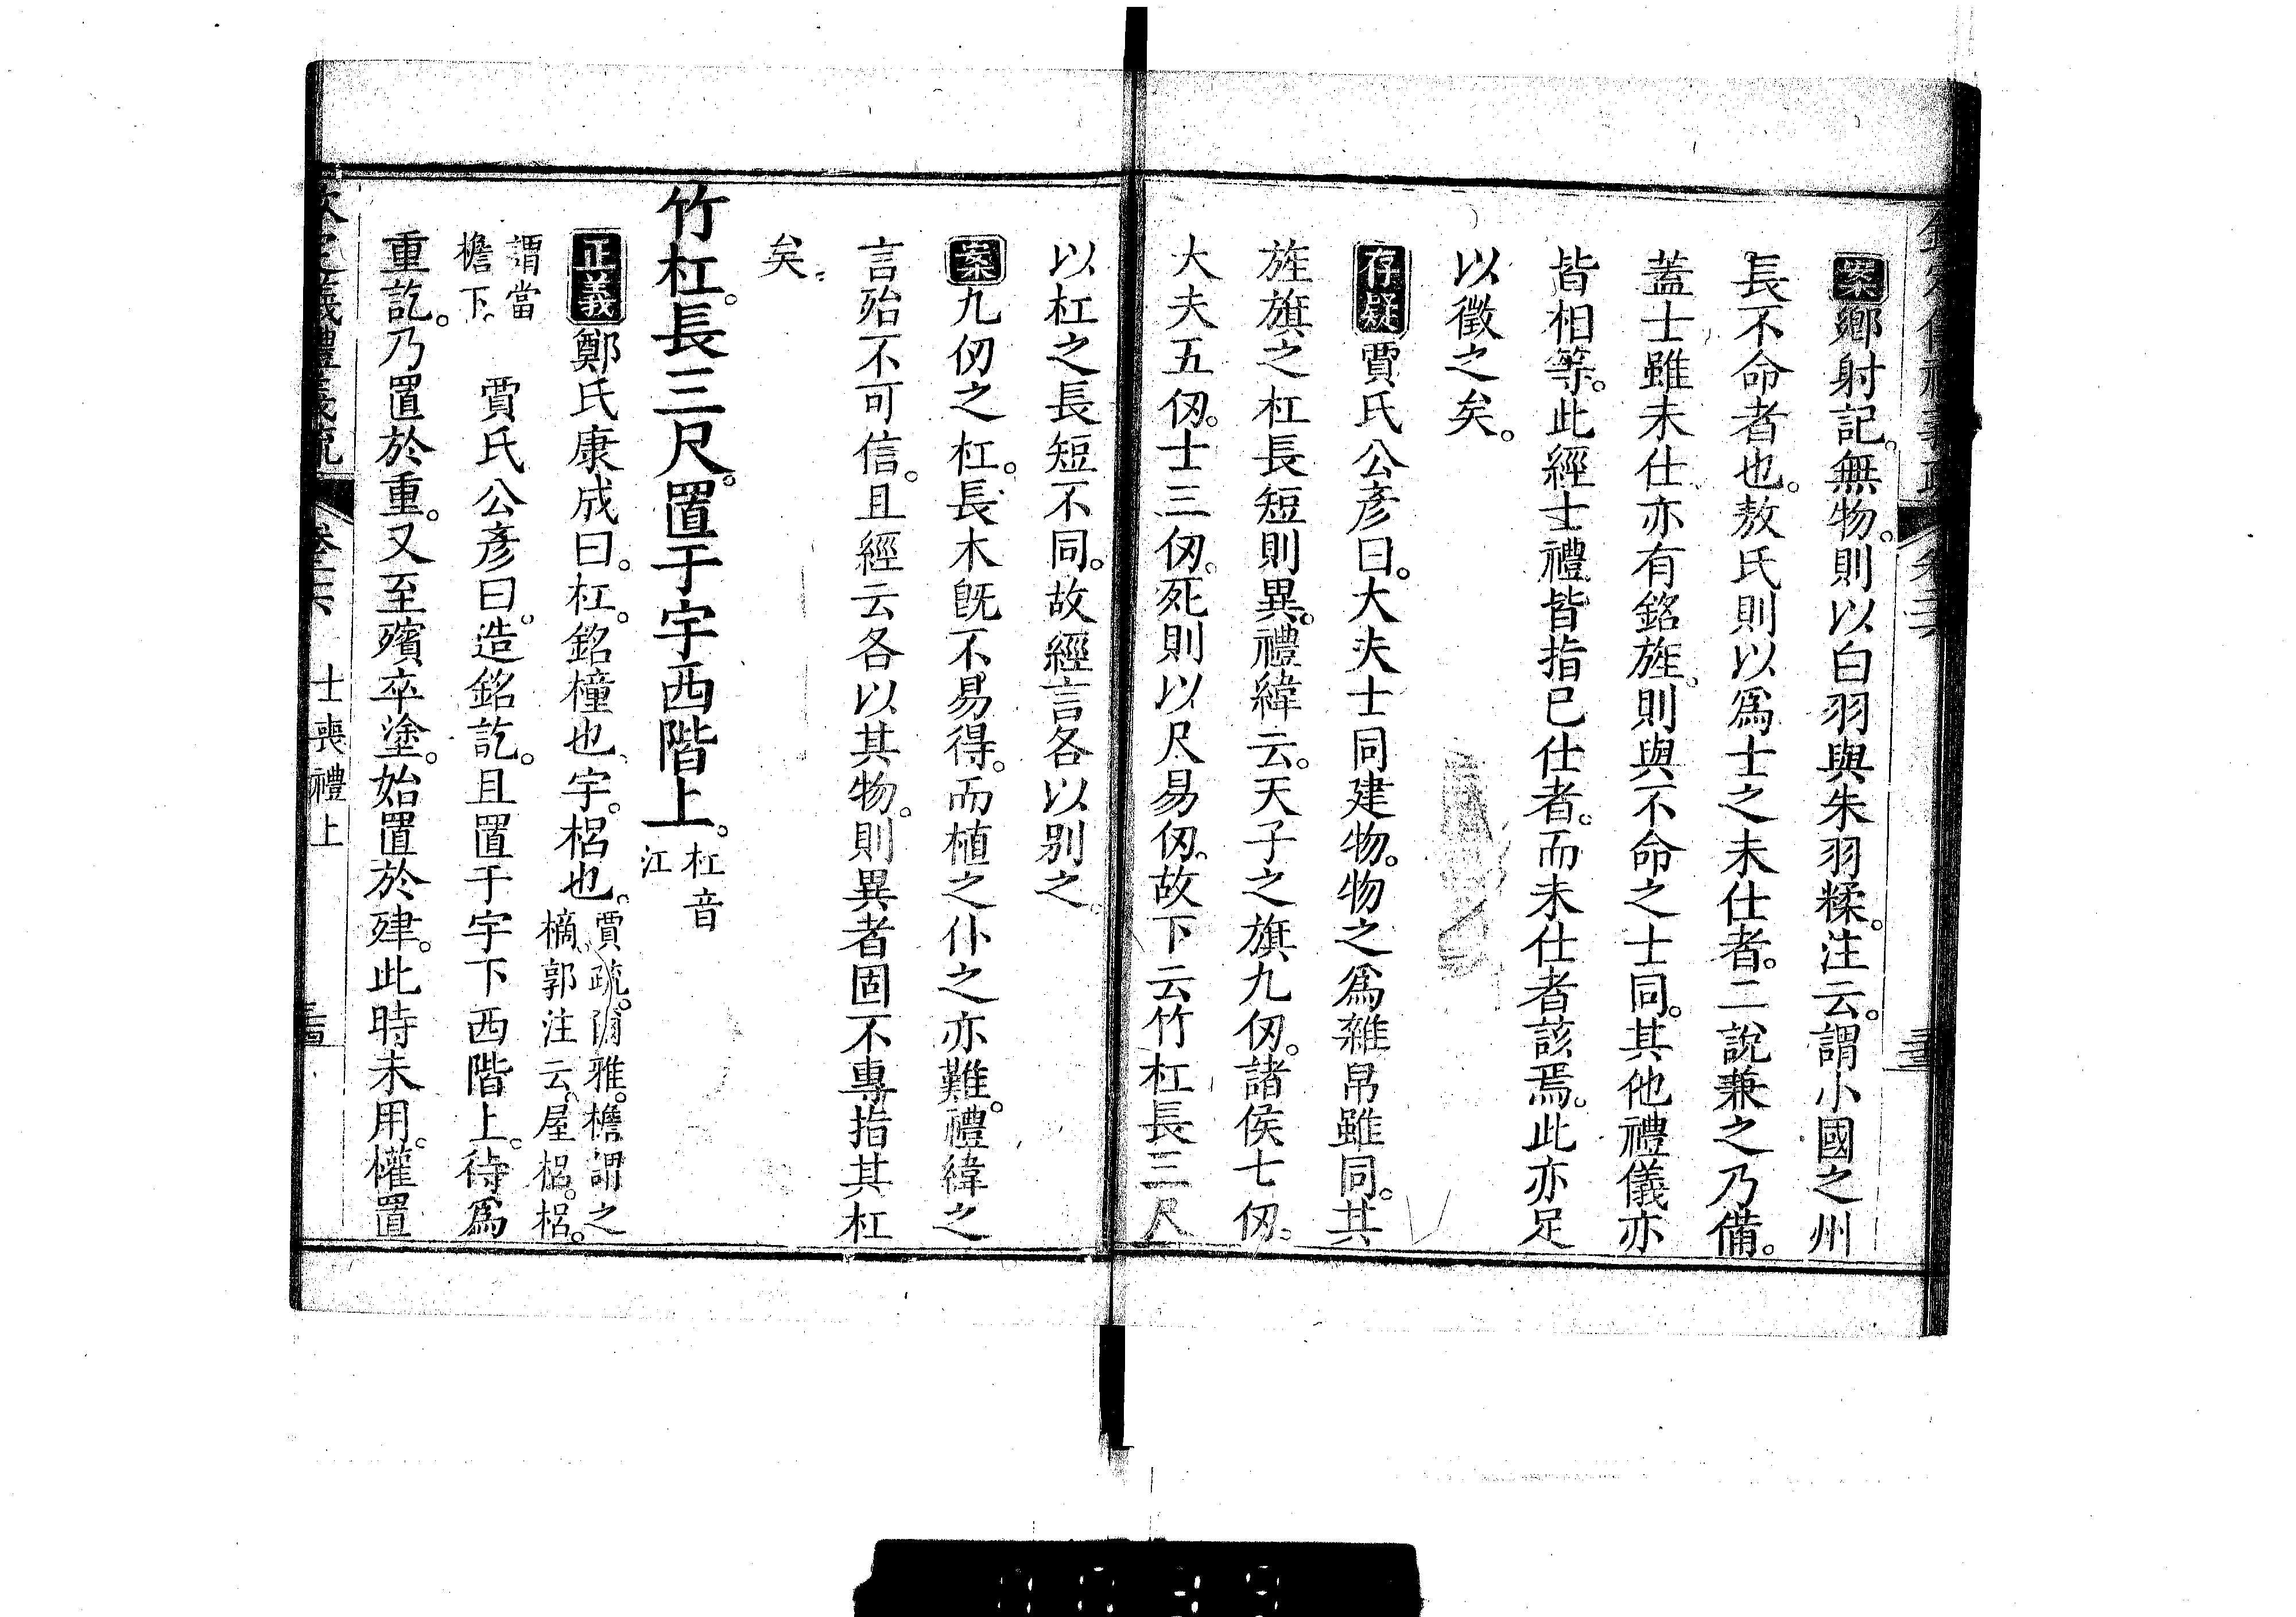 案鄉射記。無物。則以白羽與朱羽糅。注云。謂小國之州
長不命者也。敖氏則以爲士之未仕者。二說兼之乃備。
蓋士雖未仕亦有銘旌。則與不命之士同。其他禮儀亦
皆相等。此經士禮皆指已仕者。而未仕者該焉。此亦足
以徵之矣。
存疑賈氏公彥曰。大夫士同建物。物之爲雜帛雖同。其
旌旗之杠長短則異。禮緯云。天子之旗九仞。諸侯七仞。
大夫五仞。士三仞。死則以尺易仞。故下云竹杠長三尺
以杠之長短不同。故經言各以別之。
案九仞之杠。長木旣不易得。而植之仆之亦難。禮緯之
言殆不可信。且經云各以其物。則異者固不專指其杠
矣。
竹杠。長三尺。置于宇西階上。杠音
江
正義鄭氏康成曰。杠。銘橦也。宇。梠也。賈疏。爾雅。檐謂之
樀。郭注云。屋梠。梠。
謂當
檐下。
賈氏公彥曰。造銘訖。且置于宇下西階上。待爲
重訖。乃置於重。又至殯卒塗。始置於肂。此時未用。權置
欽定義禮義疏 卷二六 士喪禮上